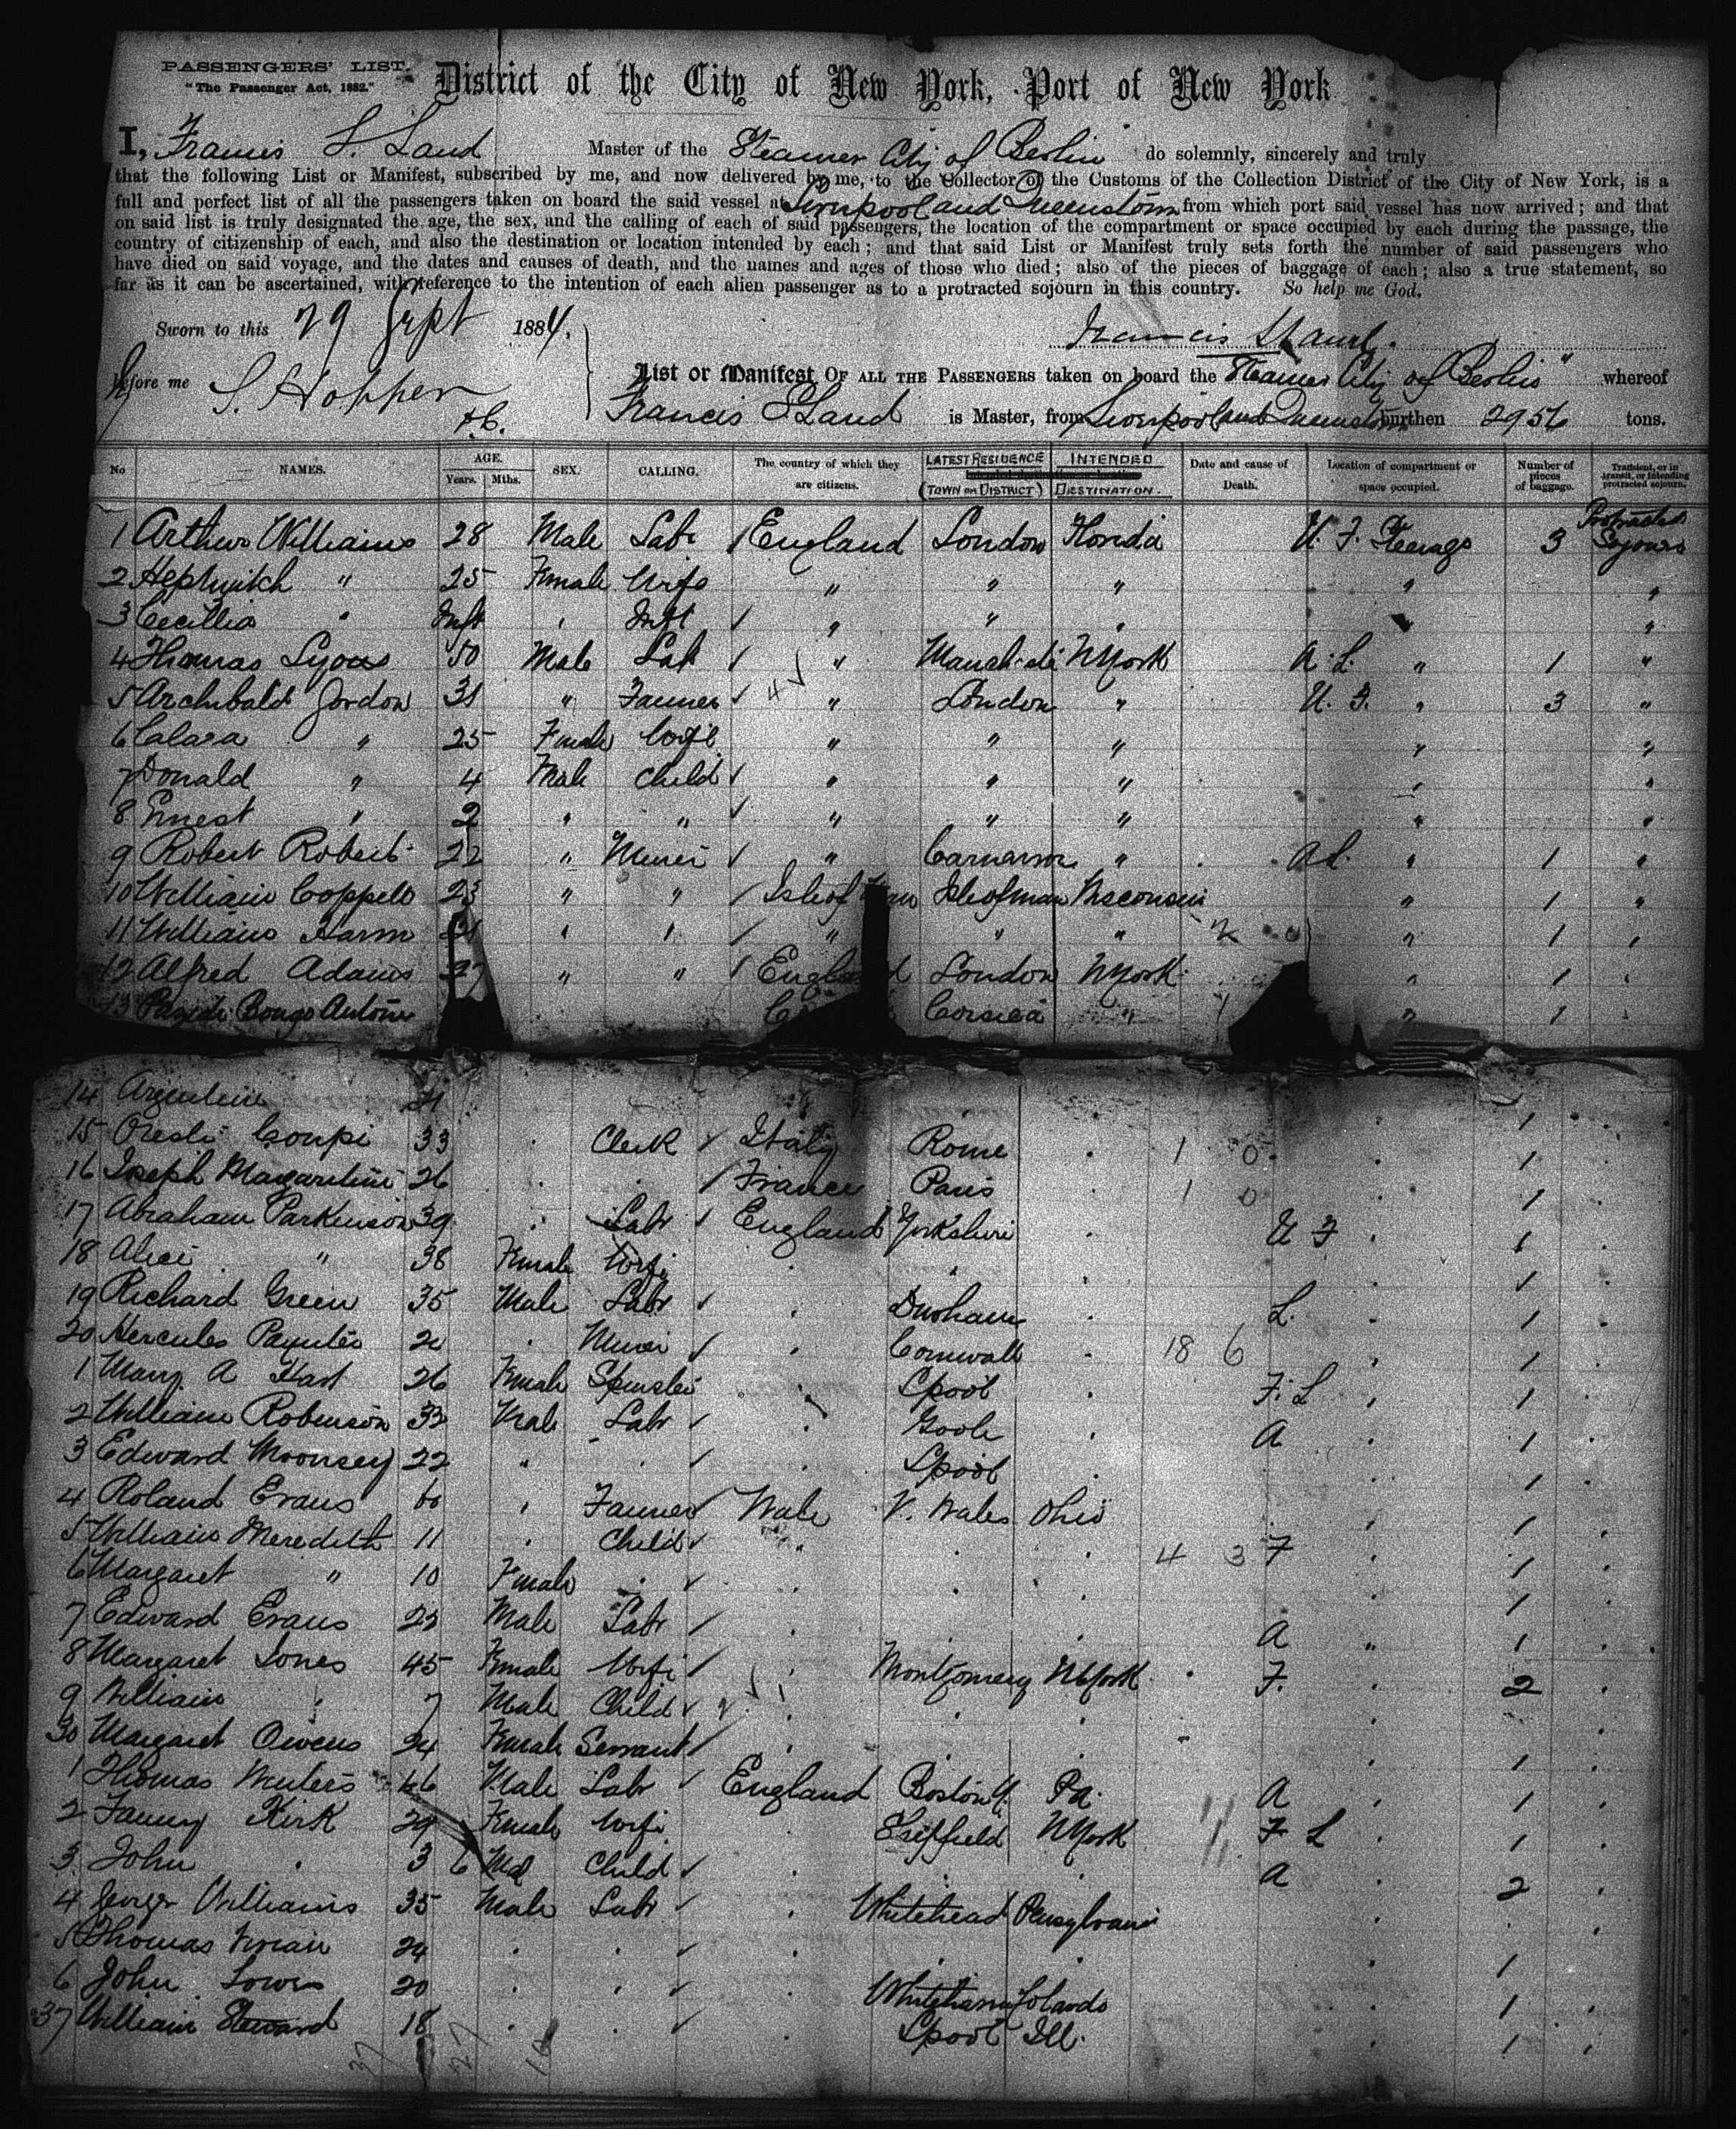 PASSENGERS' LIST.
"The Passenger Act, 1882."
District of the City of New York, Port of New York
I, Francis S. Land Master of the Steamer City of Berlin do solemnly, sincerely and truly
that the following List or Manifest, subscribed by me, and now delivered by me, to the Collector of the Customs of the Collection District of the City of New York, is a
full and perfect list of all the passengers taken on board the said vessel at Liverpool and Queenstown from which port said vessel has now arrived; and that
on said list is truly designated the age, the sex, and the calling of each of said passengers, the location of the compartment or space occupied by each during the passage, the
country of citizenship of each, and also the destination or location intended by each; and that said List or Manifest truly sets forth the number of said passengers who
have died on said voyage, and the dates and causes of death, and the names and ages of those who died; also of the pieces of baggage of each; also a true statement, so
far as it can be ascertained, with reference to the intention of each alien passenger as to a protracted sojourn in this country. So help me God.
Sworn to this 29 Sept 1884.
Francis S Land.
before me S. Hopper
List or Manifest OF ALL THE PASSENGERS taken on board the Steamer City of Berlin" whereof
Francis S Land is Master, from Liverpool and Queenstown burthen 2956 tons.
No NAMES. AGE. Years. Mths. SEX. CALLING. The country of which they are citizens. LATEST RESIDENCE (TOWN OR DISTRICT) INTENDED DESTINATION. Date and cause of Death. Location of compartment or space occupied. Number of pieces of baggage. Transient, or in transit, or intending protracted sojourn.
1 Arthur Williams 28 Male Labr England London Florida U. F. Steerage 3 Protracted Sojourn
2 " 25 Female Wife " " " " "
3 Cecillia " Inft " Inft " " " " "
4 Thomas Lyons 50 Male Lab " N York A. L. " 1 "
5 Archibald Gordon 31 " Farmer " London " U. F. " 3 "
6 Calara " 25 Female Wife " " " " "
7 Donald " 4 Male Child " " " " "
8 Ernest " 2 " " " " " " "
9 Robert Robert 22 " Miner " Carnarvon " A L. " 1 "
10 William Coppell 23 " " Isle of Man Isle of man Wisconsin " 1 "
11 William 21 " " " " " " 1 "
12 Alfred Adams 27 " " England London N York " 1 "
13 Antoni Corsica " " 1 "
14 21 1
15 Coupi 33 Clerk Italy Rome 1 0 1
16 Joseph 26 France Paris 1 0 1
17 Abraham Parkinson 39 Labr England Yorkshire U F 1
18 Alice " 38 Female Wife 1
19 Richard Green 35 Male Labr Durham L. 1
20 Hercules Paynter Miner Cornwall 18 6 1
1 Mary A Hart 26 Female Spinster Lpool F. L 1
2 William Robinson 32 Male Labr Goole A 1
3 Edward 22 " Lpool 1
4 Roland Evans 60 Farmer Wale Wales Ohio 1
5 William Meredith 11 Child " 4 3 F 1
6 Margaret " 10 Female 1
7 Edward Evans 22 Male Labr A " 1
8 Margaret Jones 45 Female Wife Montgomery N York F. 2
9 William " 7 Male Child
30 Margaret Owens 24 Female Servant 1
1 Thomas 46 Male Labr England Boston Pa. A 1
2 Fanny Kirk 29 Female Wife Sheffield N York F L 1
3 John " 3 6 Mal Child A 2
4 George Williams 35 Male Labr Whitehead Pensylvani
5 Thomas Vivian 24 1
6 John 20 1
37 William Steward 18 Lpool Ill. 1
37 27